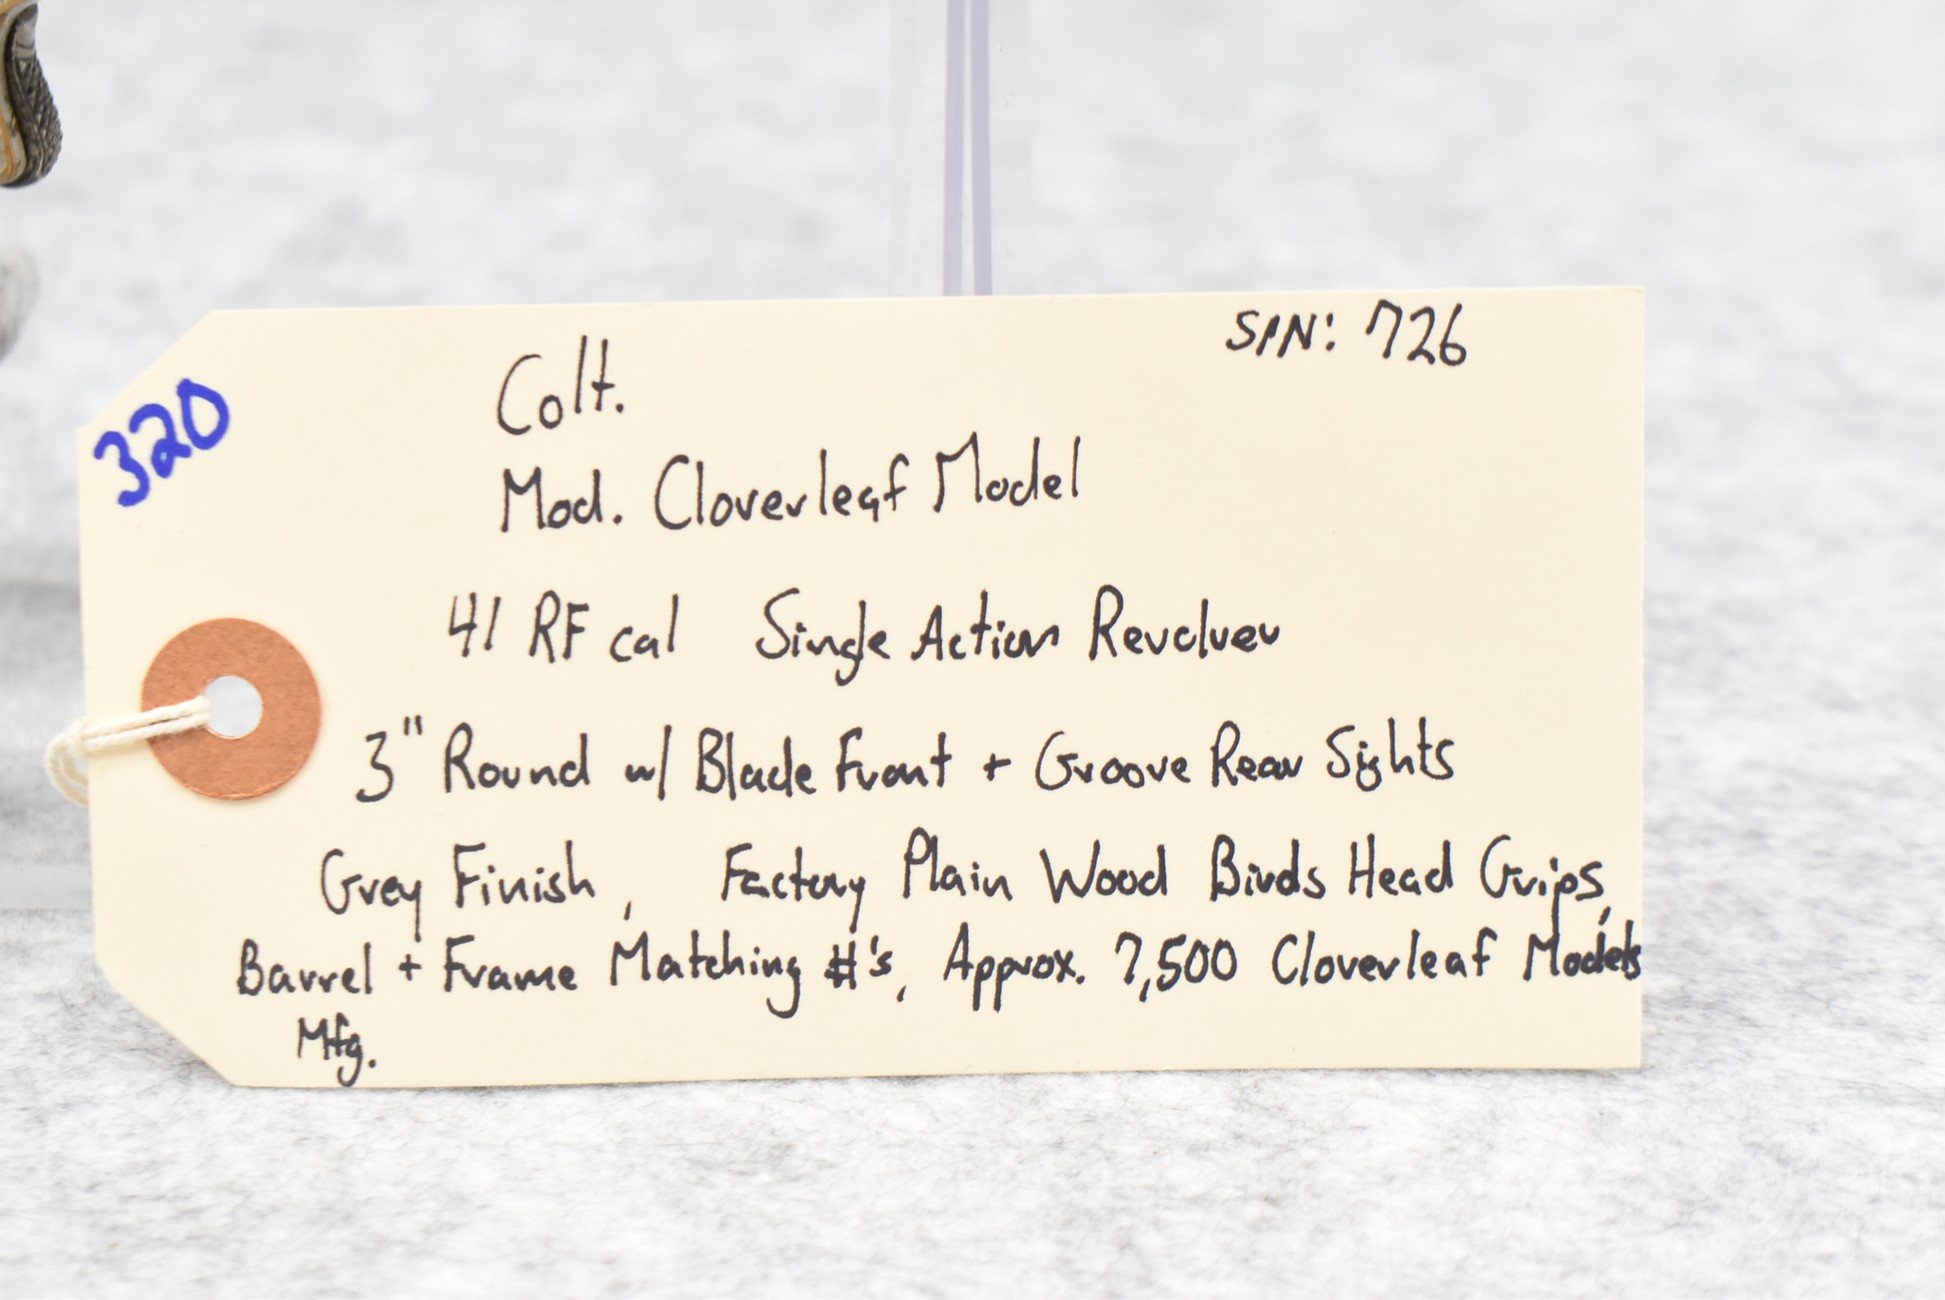 S/N: 726
320
Colt.
Mod. Cloverleaf Model
41 RF cal Single Action Revolver
3" Round w/ Blade Front + Groove Rear Sights
Grey Finish, Factory Plain Wood Birds Head Grips,
Barrel + Frame Matching #'s, Approx. 7,500 Cloverleaf Models
Mfg.